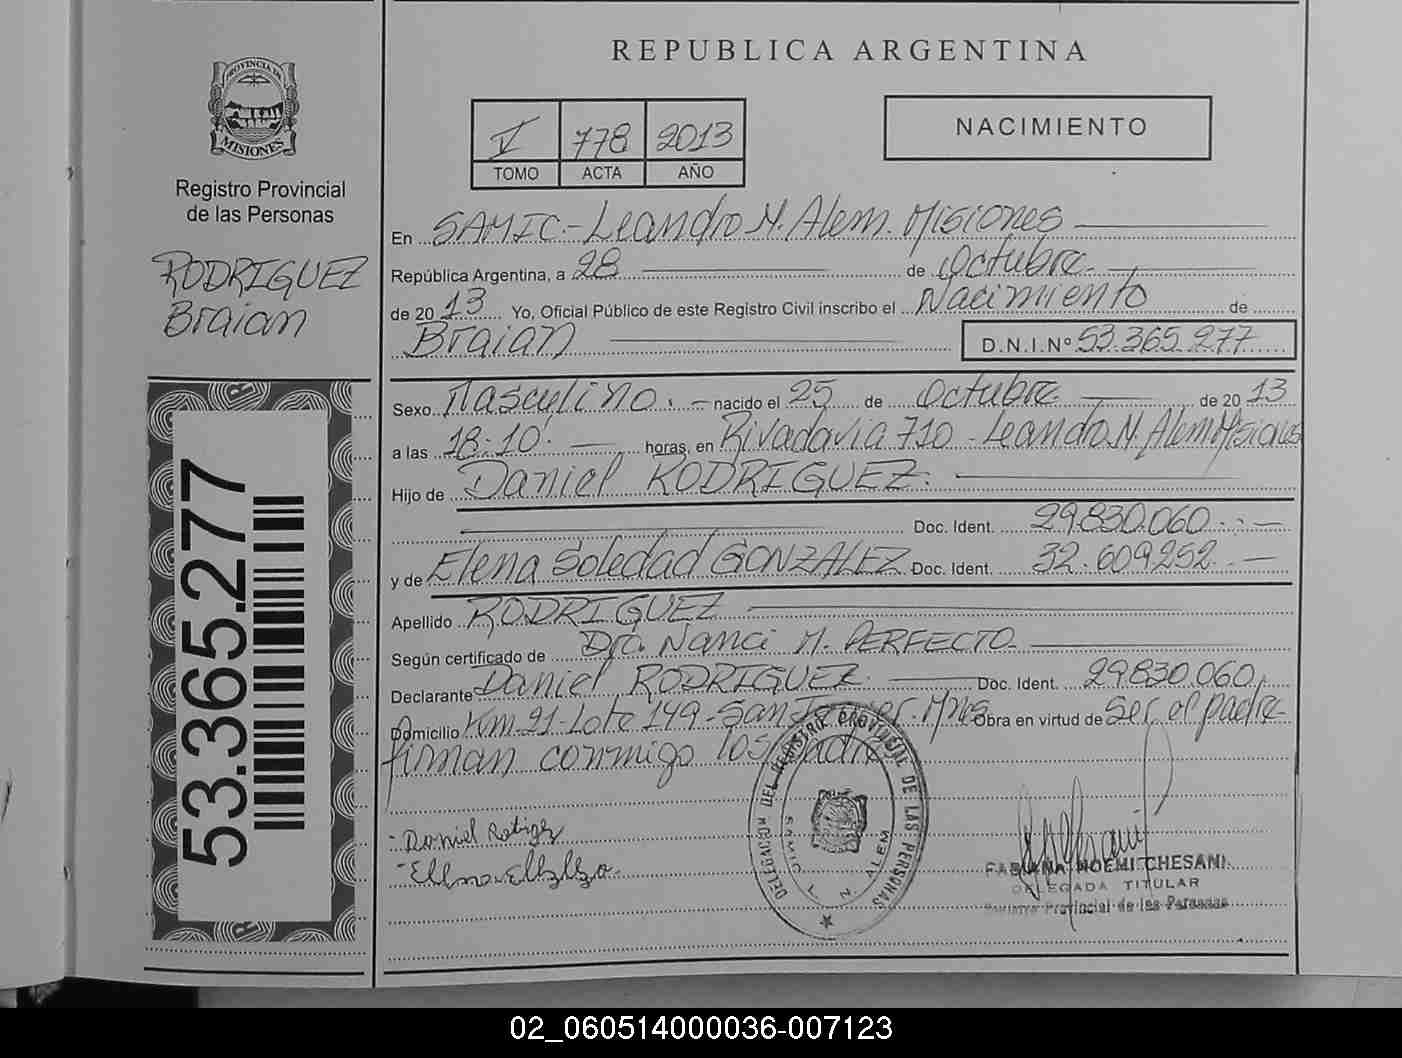 PROVINCIA DE
MISIONES
Registro Provincial
de las Personas
RODRIGUEZ
Braian
53.365.277
REPUBLICA ARGENTINA
V 778 2013
TOMO ACTA AÑO
NACIMIENTO
En SAMIC.- Leandro N. Alem. Misiones
República Argentina, a 28 de Octubre
de 2013 Yo, Oficial Público de este Registro Civil inscribo el Nacimiento de
Braian D.N.I.Nº 53.365.277
Sexo Masculino.- nacido el 25 de Octubre de 2013
a las 18:10 horas, en Rivadavia 710 - Leandro N. Alem Misiones
Hijo de Daniel RODRIGUEZ.
Doc. Ident. 29.830.060
y de Elena Soledad GONZALEZ Doc. Ident. 32.609252
Apellido RODRIGUEZ
Según certificado de Dra Nanci M. PERFECTO
Declarante Daniel RODRIGUEZ Doc. Ident. 29830.060
Domicilio Km.21-Lote 149-San Javier-Mnes Obra en virtud de Ser el padre
firman conmigo los padres
DELEGACION DEL REGISTRO PROVINCIAL DE LAS PERSONAS
SAMIC L. N. ALEM
FABIANA NOEMI CHESANI
DELEGADA TITULAR
Registro Provincial de las Personas
02_060514000036-007123